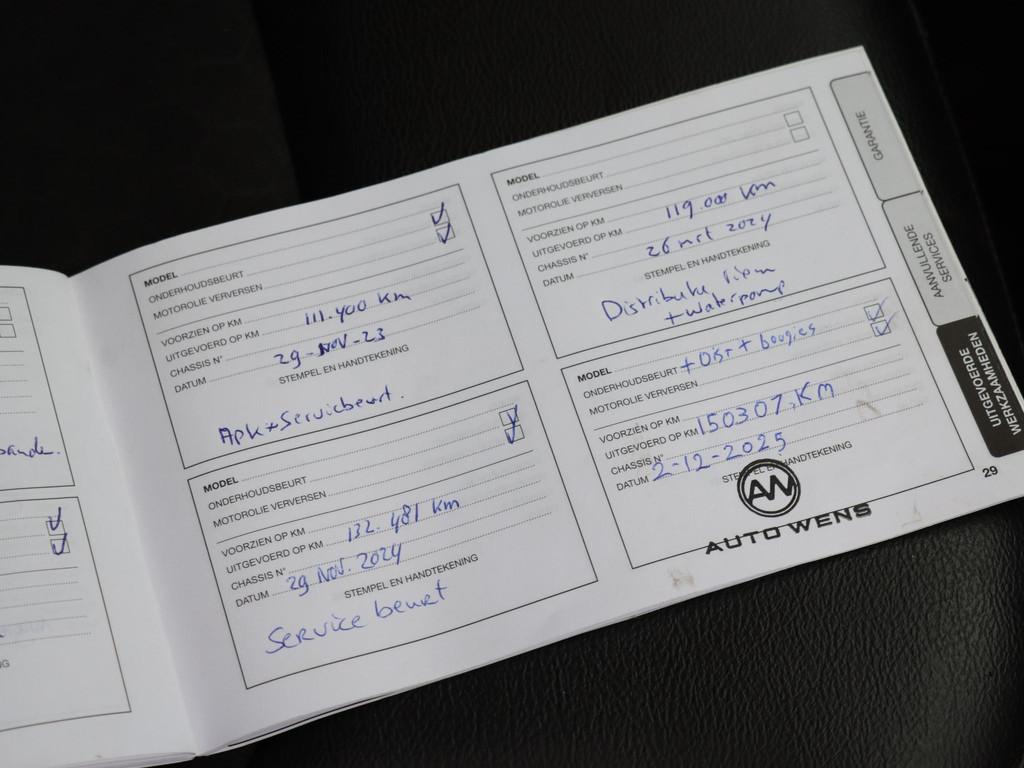 bande.
NG
MODEL
ONDERHOUDSBEURT
MOTOROLIE VERVERSEN
VOORZIEN OP KM
UITGEVOERD OP KM 111.400 km
CHASSIS N°
DATUM 29-NOV-23
STEMPEL EN HANDTEKENING
Apk+Servicbeurt.
MODEL
ONDERHOUDSBEURT
MOTOROLIE VERVERSEN
VOORZIEN OP KM
UITGEVOERD OP KM 132.481 km
CHASSIS N°
DATUM 29 NOV. 2024
STEMPEL EN HANDTEKENING
Service beurt
MODEL
ONDERHOUDSBEURT
MOTOROLIE VERVERSEN
VOORZIEN OP KM
UITGEVOERD OP KM 119.000 km
CHASSIS N°
DATUM 26 mrt 2024
STEMPEL EN HANDTEKENING
Distributie riem
+ waterpomp
MODEL
ONDERHOUDSBEURT + + bougies
MOTOROLIE VERVERSEN
VOORZIEN OP KM
UITGEVOERD OP KM 150307,KM
CHASSIS N°
DATUM 2-12-2025
STEMPEL EN HANDTEKENING
AW
AUTO WENS
GARANTIE
AANVULLENDE
SERVICES
UITGEVOERDE
WERKZAAMHEDEN
29